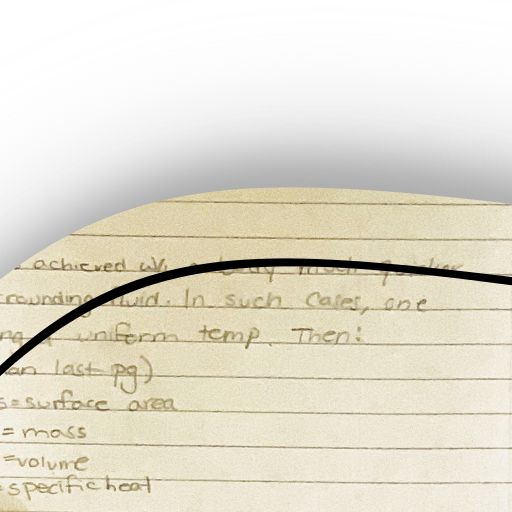 achieved w/ a body much quicker
rounding fluid. In such cases, one
uniform temp. Then:
an last pg)
s=surface area
= mass
=volume
=specific heat